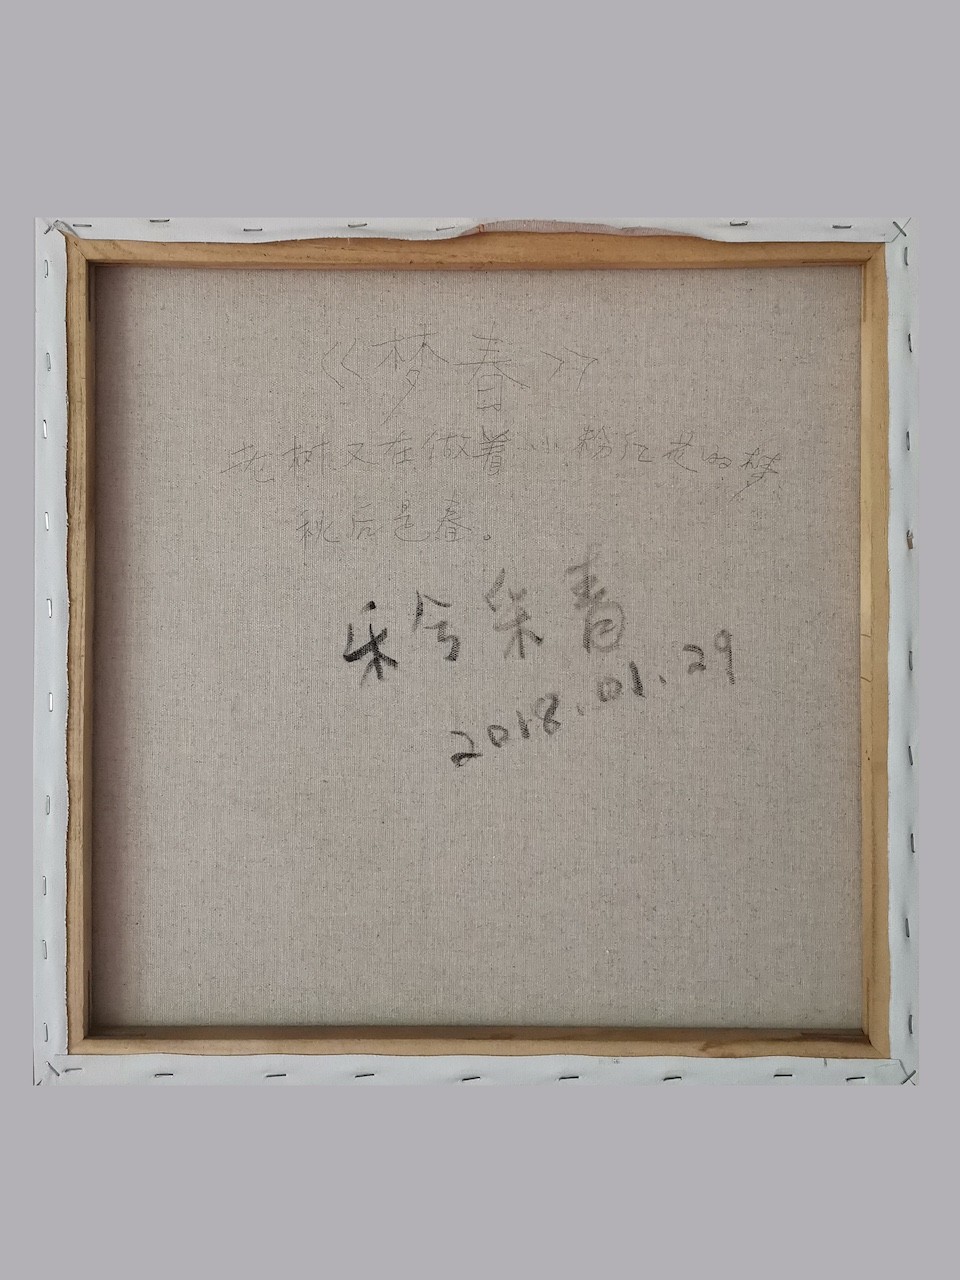 《梦春》
老树又在做着小粉红花的梦
秋后是春。
乐兮朱青
2018.01.29